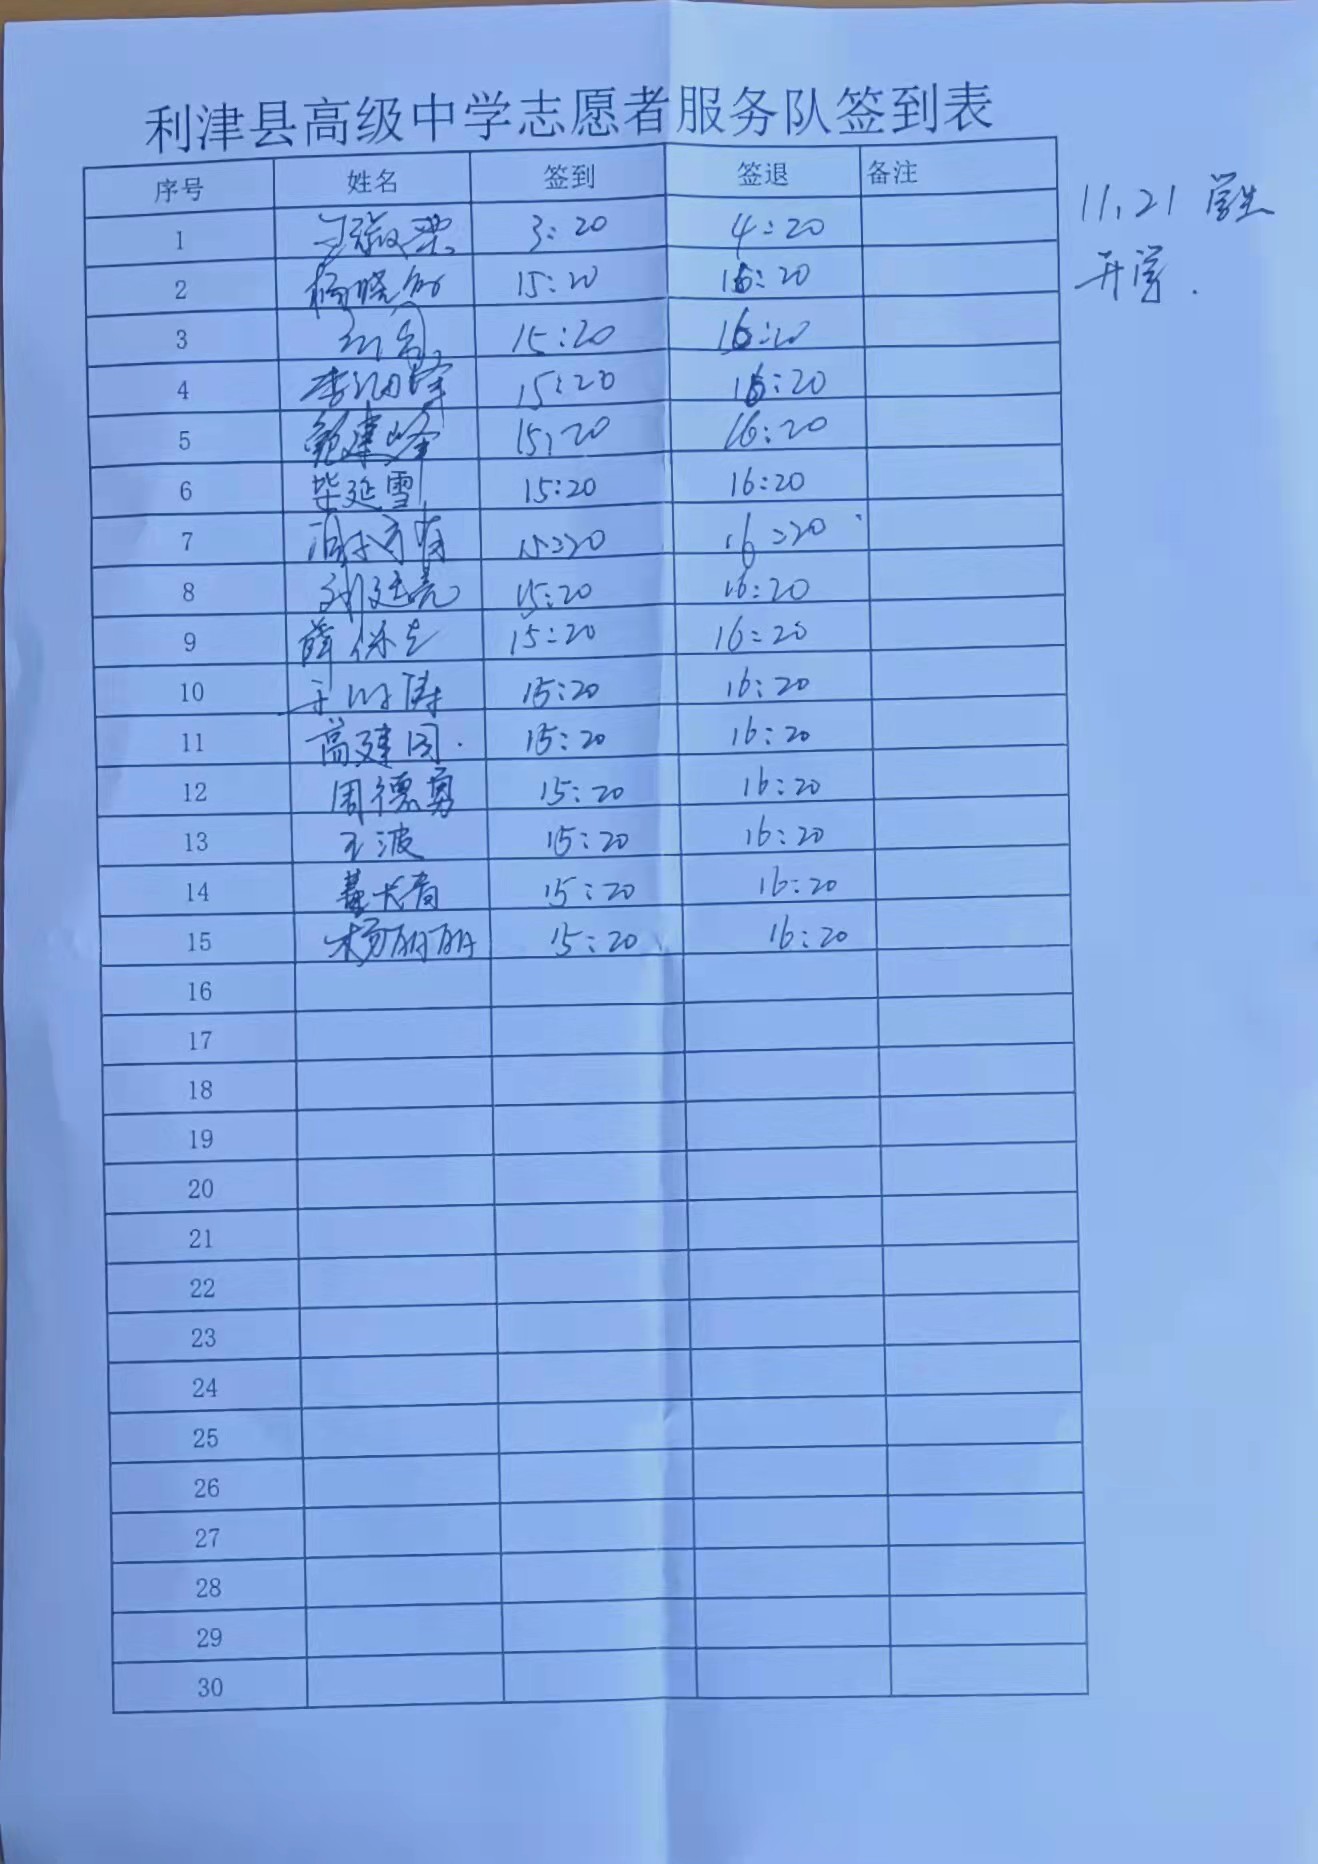 利津县高级中学志愿者服务队签到表
序号 姓名 签到 签退 备注
11,21 学生
开学.
1 3:20 4:20
2 杨晓 15:20 16:20
3 15:20 16:20
4 李 峰 15:20 16:20
5 鲍建峰 15:20 16:20
6 毕延雪 15:20 16:20
7 15:20 16:20
8 刘廷亮 15:20 16:20
9 薛 15:20 16:20
10 涛 15:20 16:20
11 高建国. 15:20 16:20
12 周德勇 15:20 16:20
13 王波 15:20 16:20
14 綦长青 15:20 16:20
15 杨丽丽 15:20 16:20
16
17
18
19
20
21
22
23
24
25
26
27
28
29
30